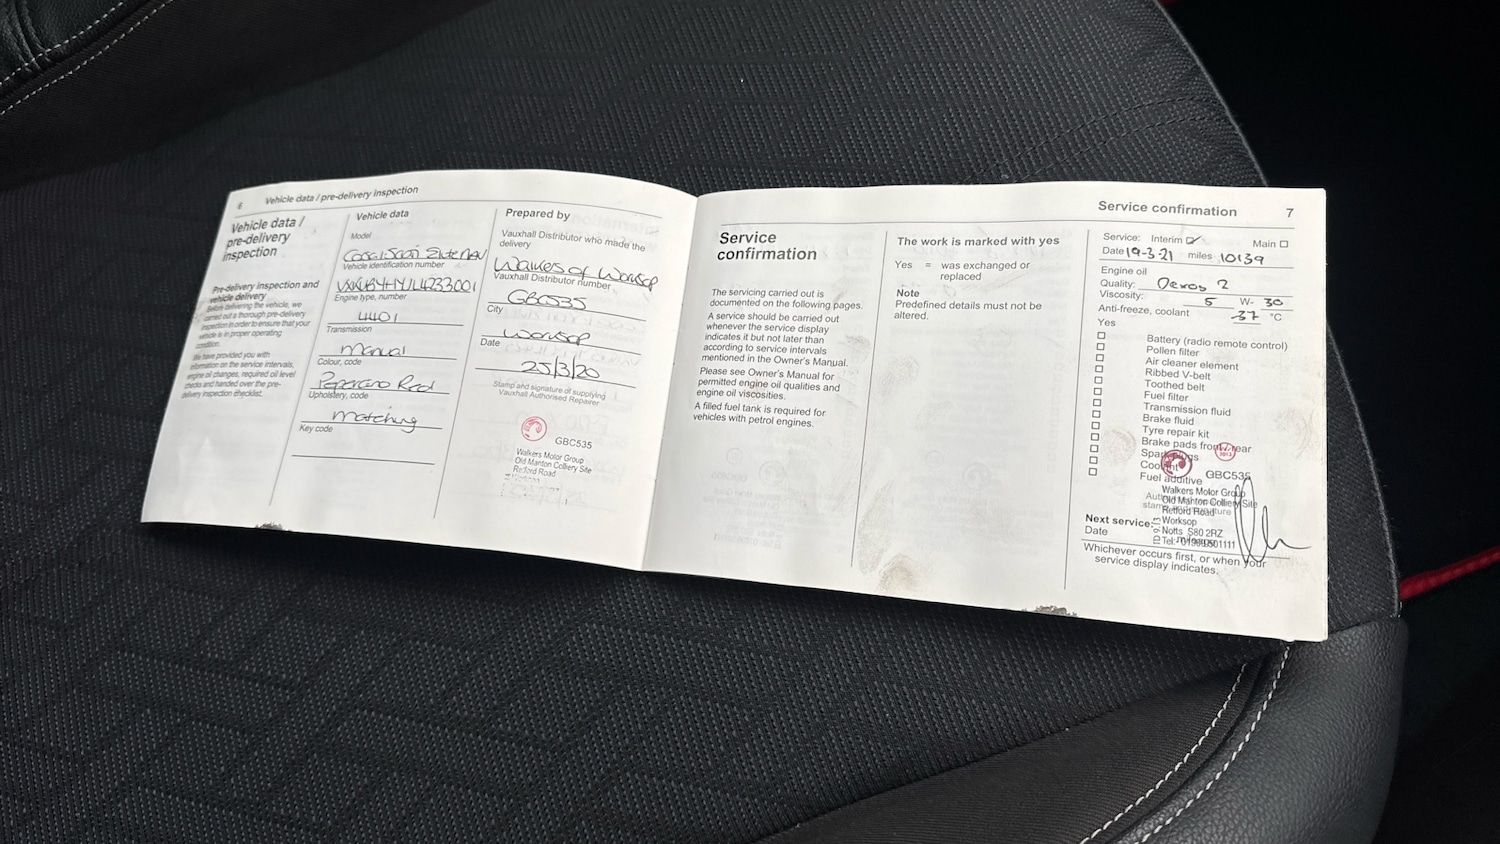 6 Vehicle data / pre-delivery inspection
Vehicle data /
pre-delivery
inspection
Pre-delivery inspection and
vehicle delivery
Before delivering the vehicle, we
carried out a thorough pre-delivery
inspection in order to ensure that your
vehicle is in proper operating
condition.
We have provided you with
information on the service intervals,
engine oil changes, required oil level
checks and handed over the pre-
delivery inspection checklist.
Vehicle data
Model
Elite NAV
Vehicle identification number
Engine type, number
Transmission
Manual
Colour, code
Red
Upholstery, code
Matching
Key code
Prepared by
Vauxhall Distributor who made the
delivery
Walkers of Worksop
Vauxhall Distributor number
GBC535
City
Worksop
Date
25/3/20
Stamp and signature of supplying
Vauxhall Authorised Repairer
GBC535
Walkers Motor Group
Old Manton Colliery Site
Retford Road
Service confirmation 7
Service
confirmation
The servicing carried out is
documented on the following pages.
A service should be carried out
whenever the service display
indicates it but not later than
according to service intervals
mentioned in the Owner's Manual.
Please see Owner's Manual for
permitted engine oil qualities and
engine oil viscosities.
A filled fuel tank is required for
vehicles with petrol engines.
The work is marked with yes
Yes = was exchanged or
replaced
Note
Predefined details must not be
altered.
Service: Interim Main
Date 19-3-21 miles 10139
Engine oil
Quality: Dexos 2
Viscosity: 5 W- 30
Anti-freeze, coolant -37 °C
Yes
Battery (radio remote control)
Pollen filter
Air cleaner element
Ribbed V-belt
Toothed belt
Fuel filter
Transmission fluid
Brake fluid
Tyre repair kit
Brake pads front/rear
Spark plugs
Coolant
Fuel additive
GBC535
Walkers Motor Group
Old Manton Colliery Site
Retford Road
Worksop
Notts S80 2RZ
Tel: 01909501111
Next service:
Date
Whichever occurs first, or when your
service display indicates.